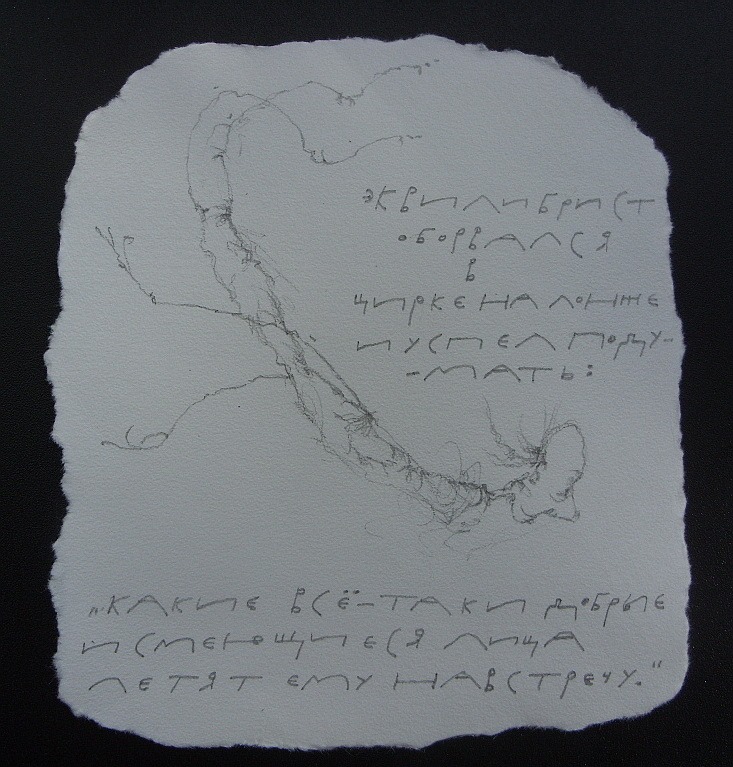 эквилибрист
оборвался
в
цирке на лонже
и успел поду-
-мать:
„какие всё-таки добрые
и смеющиеся лица
летят ему навстречу."